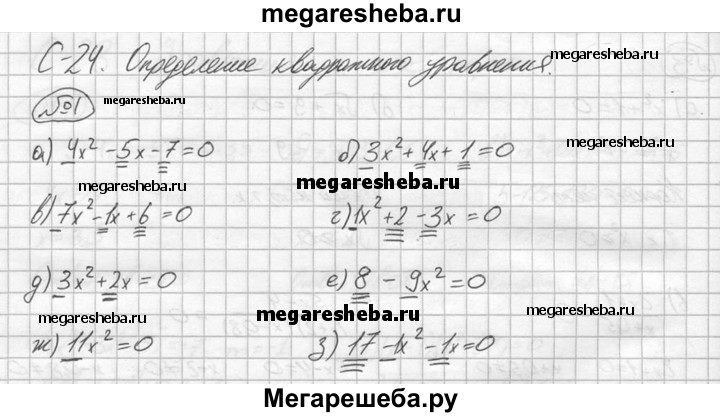 megaresheba.ru
С-24. Определение квадратного уравнения.
megaresheba.ru
№1
megaresheba.ru
megaresheba.ru
а) 4x² - 5x - 7 = 0 б) 3x² + 4x + 1 = 0
megaresheba.ru
megaresheba.ru
megaresheba.ru
в) 7x² - 1x + 6 = 0 г) 1x² + 2 - 3x = 0
д) 3x² + 2x = 0 е) 8 - 9x² = 0
megaresheba.ru
megaresheba.ru
megaresheba.ru
ж) 11x² = 0 з) 17 - 1x² - 1x = 0
Мегарешеба.ру